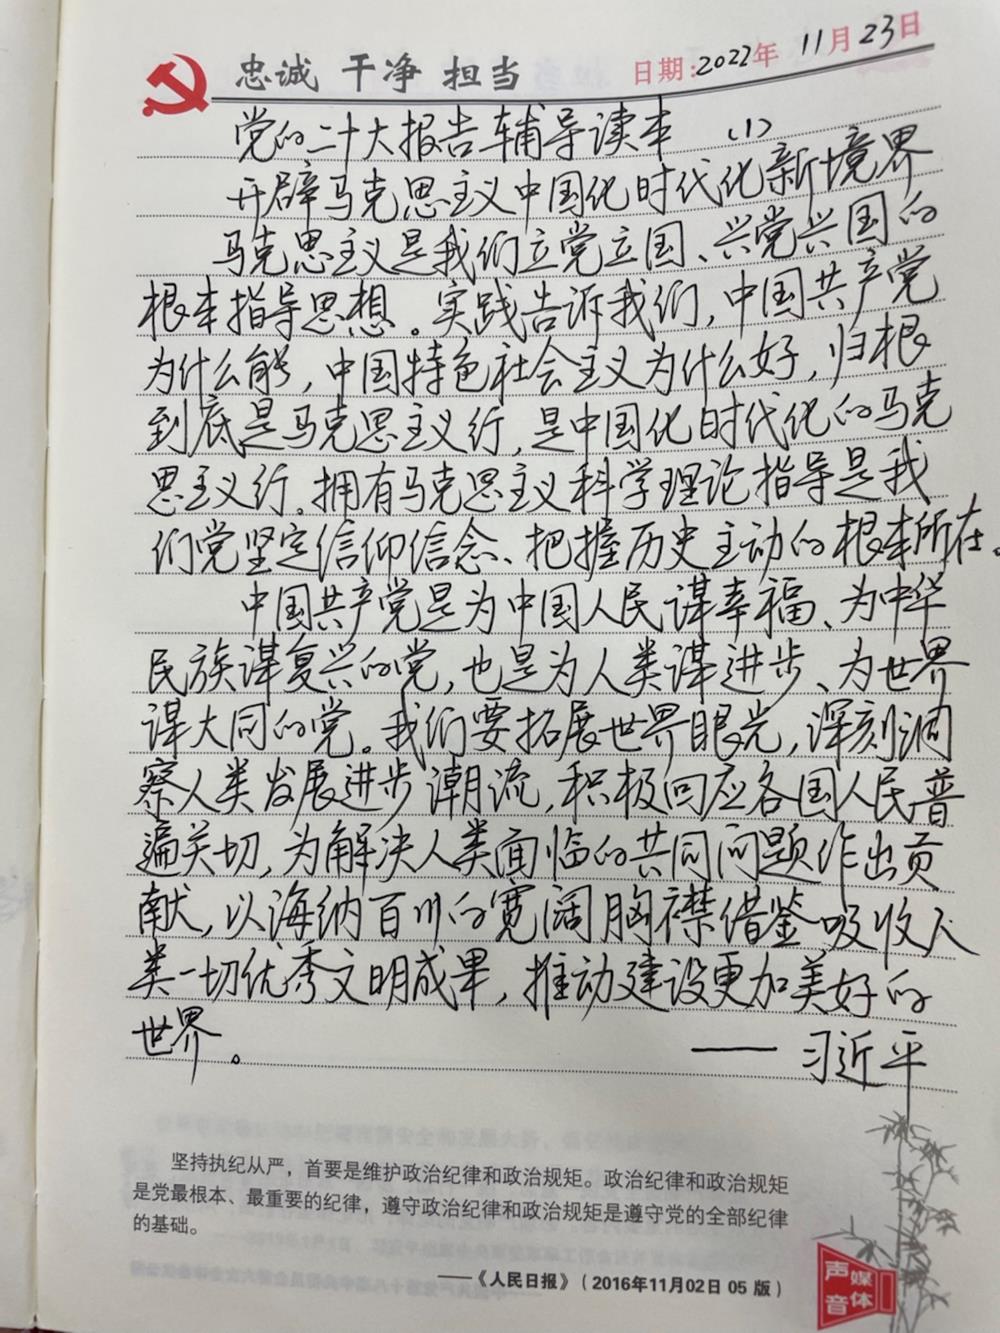 忠诚 干净 担当
日期:2022年 11月23日
党的二十大报告辅导读本 (1)
开辟马克思主义中国化时代化新境界
马克思主义是我们立党立国、兴党兴国的
根本指导思想。实践告诉我们,中国共产党
为什么能,中国特色社会主义为什么好,归根
到底是马克思主义行,是中国化时代化的马克
思主义行。拥有马克思主义科学理论指导是我
们党坚定信仰信念、把握历史主动的根本所在。
中国共产党是为中国人民谋幸福、为中华
民族谋复兴的党,也是为人类谋进步、为世界
谋大同的党。我们要拓展世界眼光,深刻洞
察人类发展进步潮流,积极回应各国人民普
遍关切,为解决人类面临的共同问题作出贡
献,以海纳百川的宽阔胸襟借鉴吸收人
类一切优秀文明成果,推动建设更加美好的
世界。 ——习近平
坚持执纪从严,首要是维护政治纪律和政治规矩。政治纪律和政治规矩
是党最根本、最重要的纪律,遵守政治纪律和政治规矩是遵守党的全部纪律
的基础。
——《人民日报》(2016年11月02日 05 版)
声音
媒体